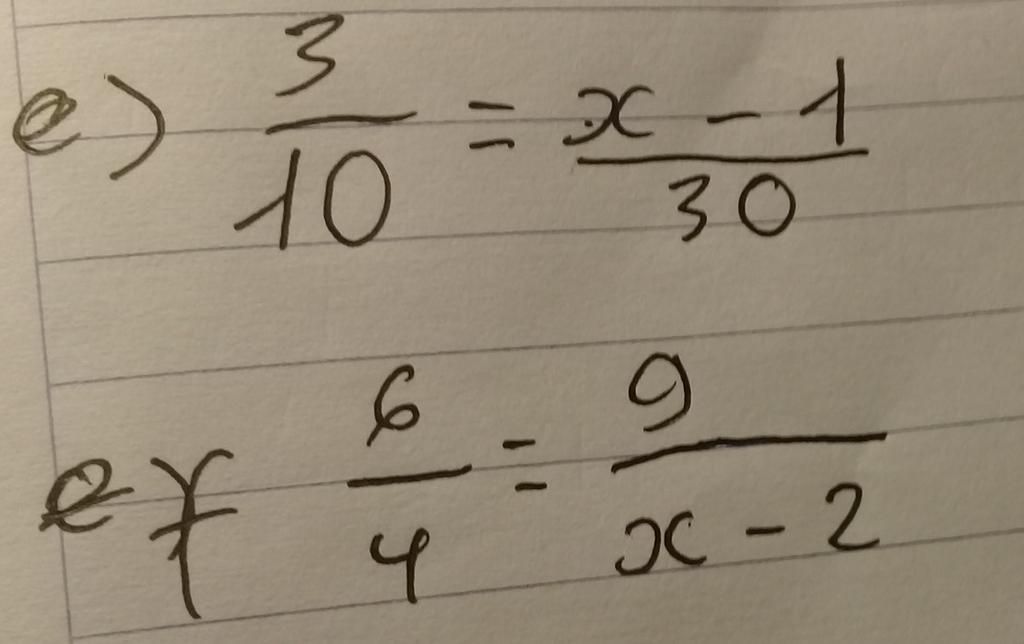 e) 3/10 = x - 1/30
f 6/4 = 9/x - 2